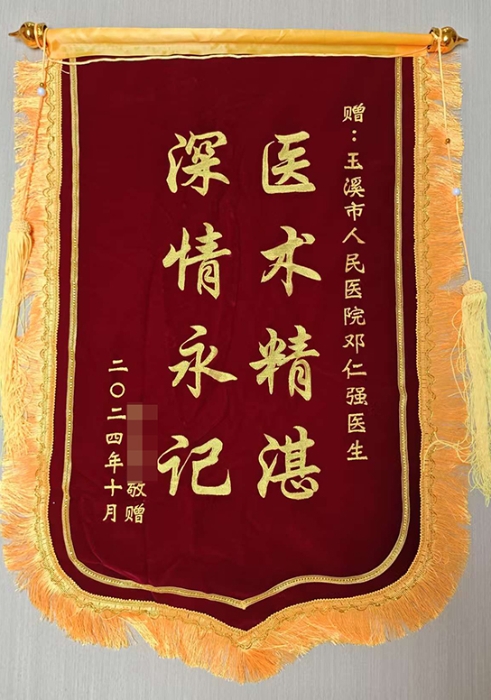 赠：玉溪市人民医院邓仁强医生
医术精湛
深情永记
敬赠
二〇二四年十月